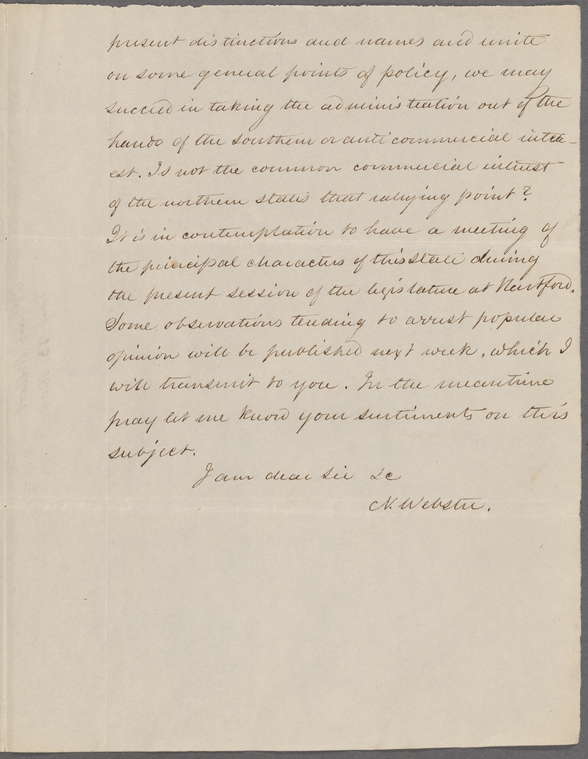 present distinctions and names and unite
on some general points of policy, we may
succeed in taking the administration out of the
hands of the southern or anti commercial inter-
est. Is not the common commercial interest
of the northern states that rallying point?
It is in contemplation to have a meeting of
the principal characters of this state during
the present session of the legislature at Hartford.
Some observations tending to arrest popular
opinion will be published next week, which I
will transmit to you. In the meantime
pray let me know your sentiments on this
subject.
I am dear sir &c
N. Webster.